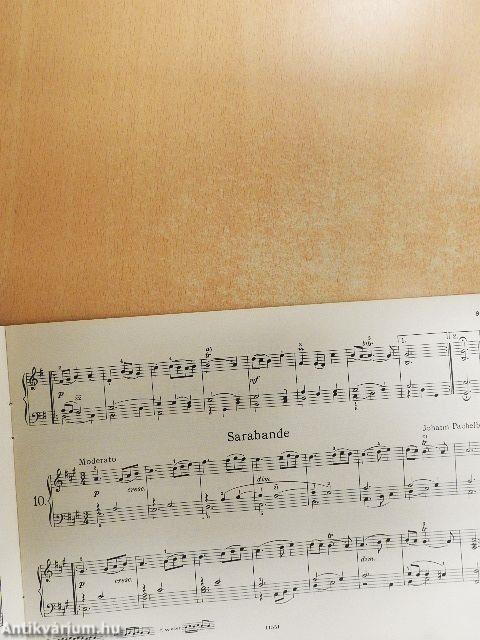 9
1.
2.
p
mf
Sarabande
Johann Pachelb
Moderato
10.
p
cresc.
dim.
p
cresc.
dim.
11551
Antikvárium.hu